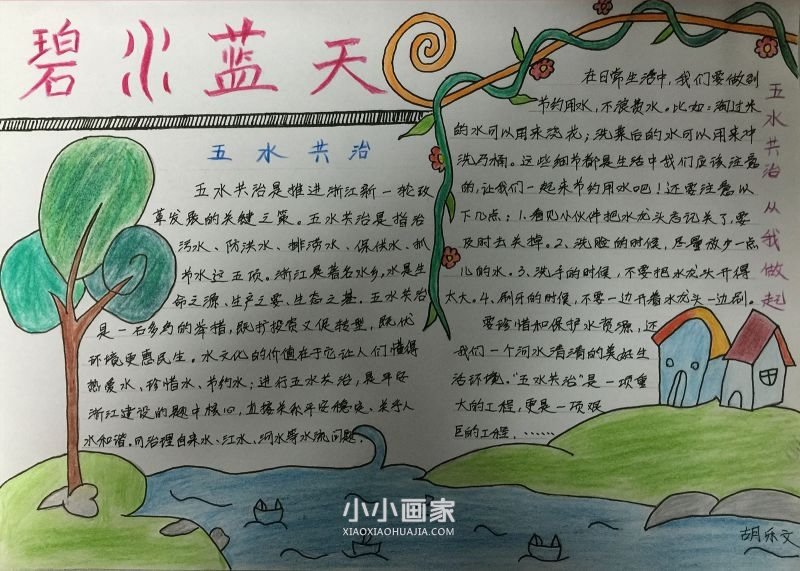 碧水蓝天
五水共治
五水共治是推进浙江新一轮改
革发展的关键之策。五水共治是指治
污水、防洪水、排涝水、保供水、抓
节水这五项。浙江是著名水乡,水是生
命之源、生产之要、生态之基。五水共治
是一石多鸟的举措,既扩投资又促转型,既优
环境更惠民生。水文化的价值在于它让人们懂得
热爱水、珍惜水、节约水;进行五水共治,是平安
浙江建设的题中
直接关系平安稳定、关乎人
水和谐。可治理自来水、江水、河水等水流问题。
在日常生活中,我们要做到
节约用水,不浪费水。比如:淘过米
的水可以用来浇花;洗菜后的水可以用来冲
洗马桶。这些细节都是生活中我们应该注意
的,让我们一起来节约用水吧!还要注意以
下几点:1、看见小伙伴把水龙头忘记关了,要
及时去关掉。2、洗脸的时候,尽量放少一点
儿的水。3、洗手的时候,不要把水龙头开得
太大。4、刷牙的时候,不要一边开着水龙头一边刷。
要珍惜和保护水资源,还
我们一个河水清清的美好生
活环境。"五水共治"是一项重
大的工程,更是一项艰
巨的工程,……
五水共治从我做起
胡乐文
小小画家
XIAOXIAOHUAJIA.COM